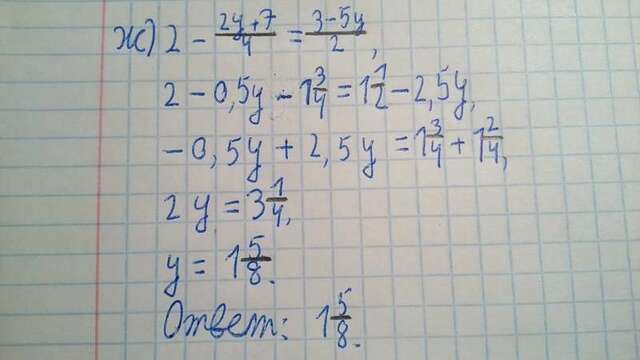 ж) 2 - \frac{2y+7}{4} = \frac{3-5y}{2},
2 - 0,5y - 1\frac{3}{4} = 1\frac{1}{2} - 2,5y,
-0,5y + 2,5y = 1\frac{3}{4} + 1\frac{2}{4},
2y = 3\frac{1}{4},
y = 1\frac{5}{8}.
Ответ: 1\frac{5}{8}.